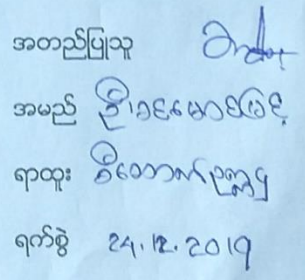 အတည်ပြုသူ
အမည် ဦးခင်မောင်မြင့်
ရာထူး စီမံ
ရက်စွဲ 24.12.2019